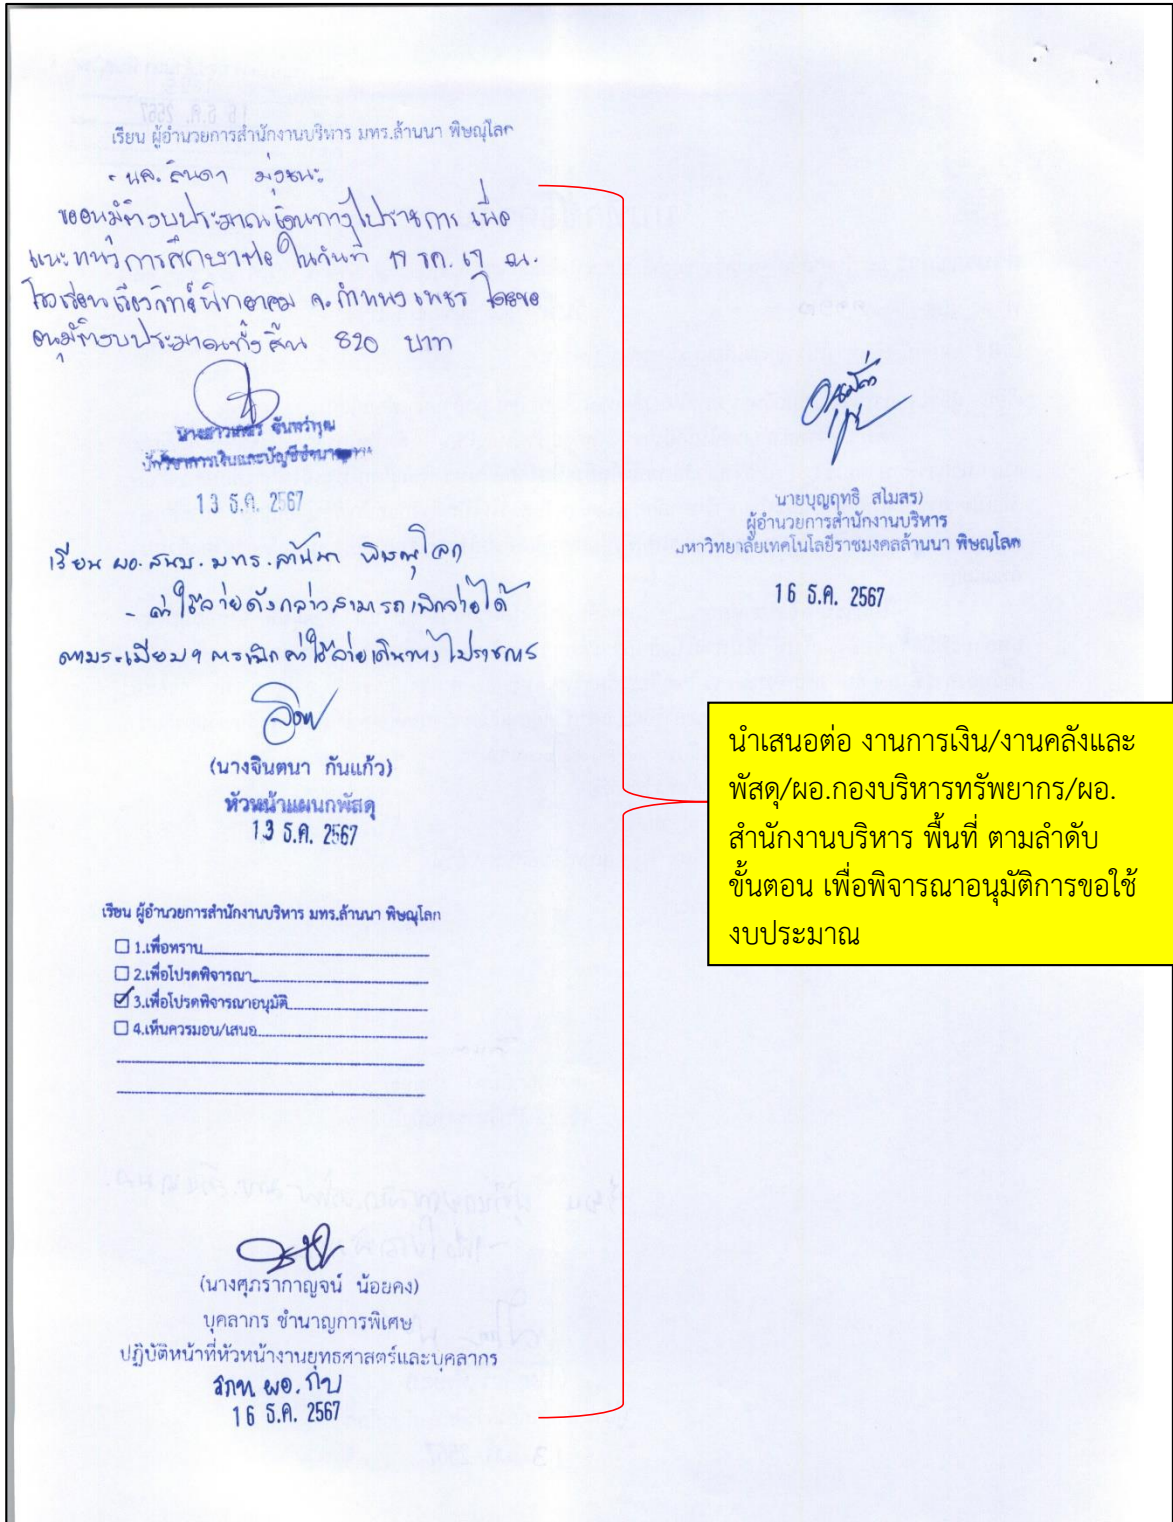 เรียน ผู้อำนวยการสำนักงานบริหาร มทร.ล้านนา พิษณุโลก
- นส. ลินดา มุ่งชนะ
ขออนุมัติงบประมาณเดินทางไปราชการ เพื่อ
แนะแนวการศึกษาต่อ ในวันที่ 19 ธค. 67 ณ.
โรงเรียน จ. กำแพงเพชร โดยขอ
อนุมัติงบประมาณทั้งสิ้น 820 บาท
นางสาวเกสร จันทร์
นักวิชาการเงินและบัญชีชำนาญการ
13 ธ.ค. 2567
เรียน ผอ. สนบ. มทร. ล้านนา พิษณุโลก
- ค่าใช้จ่ายดังกล่าวสามารถเบิกจ่ายได้
ตามระเบียบฯ การเบิกค่าใช้จ่ายเดินทางไปราชการ
(นางจินตนา กันแก้ว)
หัวหน้าแผนกพัสดุ
13 ธ.ค. 2567
เรียน ผู้อำนวยการสำนักงานบริหาร มทร.ล้านนา พิษณุโลก
1.เพื่อทราบ
2.เพื่อโปรดพิจารณา
3.เพื่อโปรดพิจารณาอนุมัติ
4.เห็นควรมอบ/เสนอ
(นางศุภรากาญจน์ น้อยคง)
บุคลากร ชำนาญการพิเศษ
ปฏิบัติหน้าที่หัวหน้างานยุทธศาสตร์และบุคลากร
รกท. ผอ. กบ
16 ธ.ค. 2567
อนุมัติ
นายบุญฤทธิ์ สโมสร)
ผู้อำนวยการสำนักงานบริหาร
มหาวิทยาลัยเทคโนโลยีราชมงคลล้านนา พิษณุโลก
16 ธ.ค. 2567
นำเสนอต่อ งานการเงิน/งานคลังและ
พัสดุ/ผอ.กองบริหารทรัพยากร/ผอ.
สำนักงานบริหาร พื้นที่ ตามลำดับ
ขั้นตอน เพื่อพิจารณาอนุมัติการขอใช้
งบประมาณ